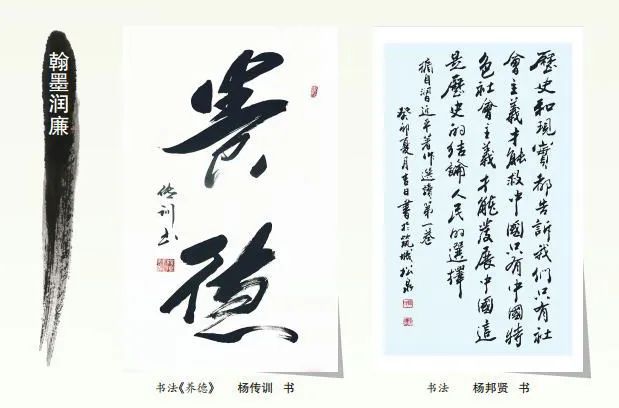 翰墨润廉
養
德
傳训书
歷史和現實都告訴我們只有社
會主義才能救中國只有中國特
色社會主義才能發展中國這
是歷史的結論人民的選擇
摘自習近平著作選讀第一卷
癸卯夏月吉日書於筑城松泉
书法《养德》 杨传训 书
书法 杨邦贤 书